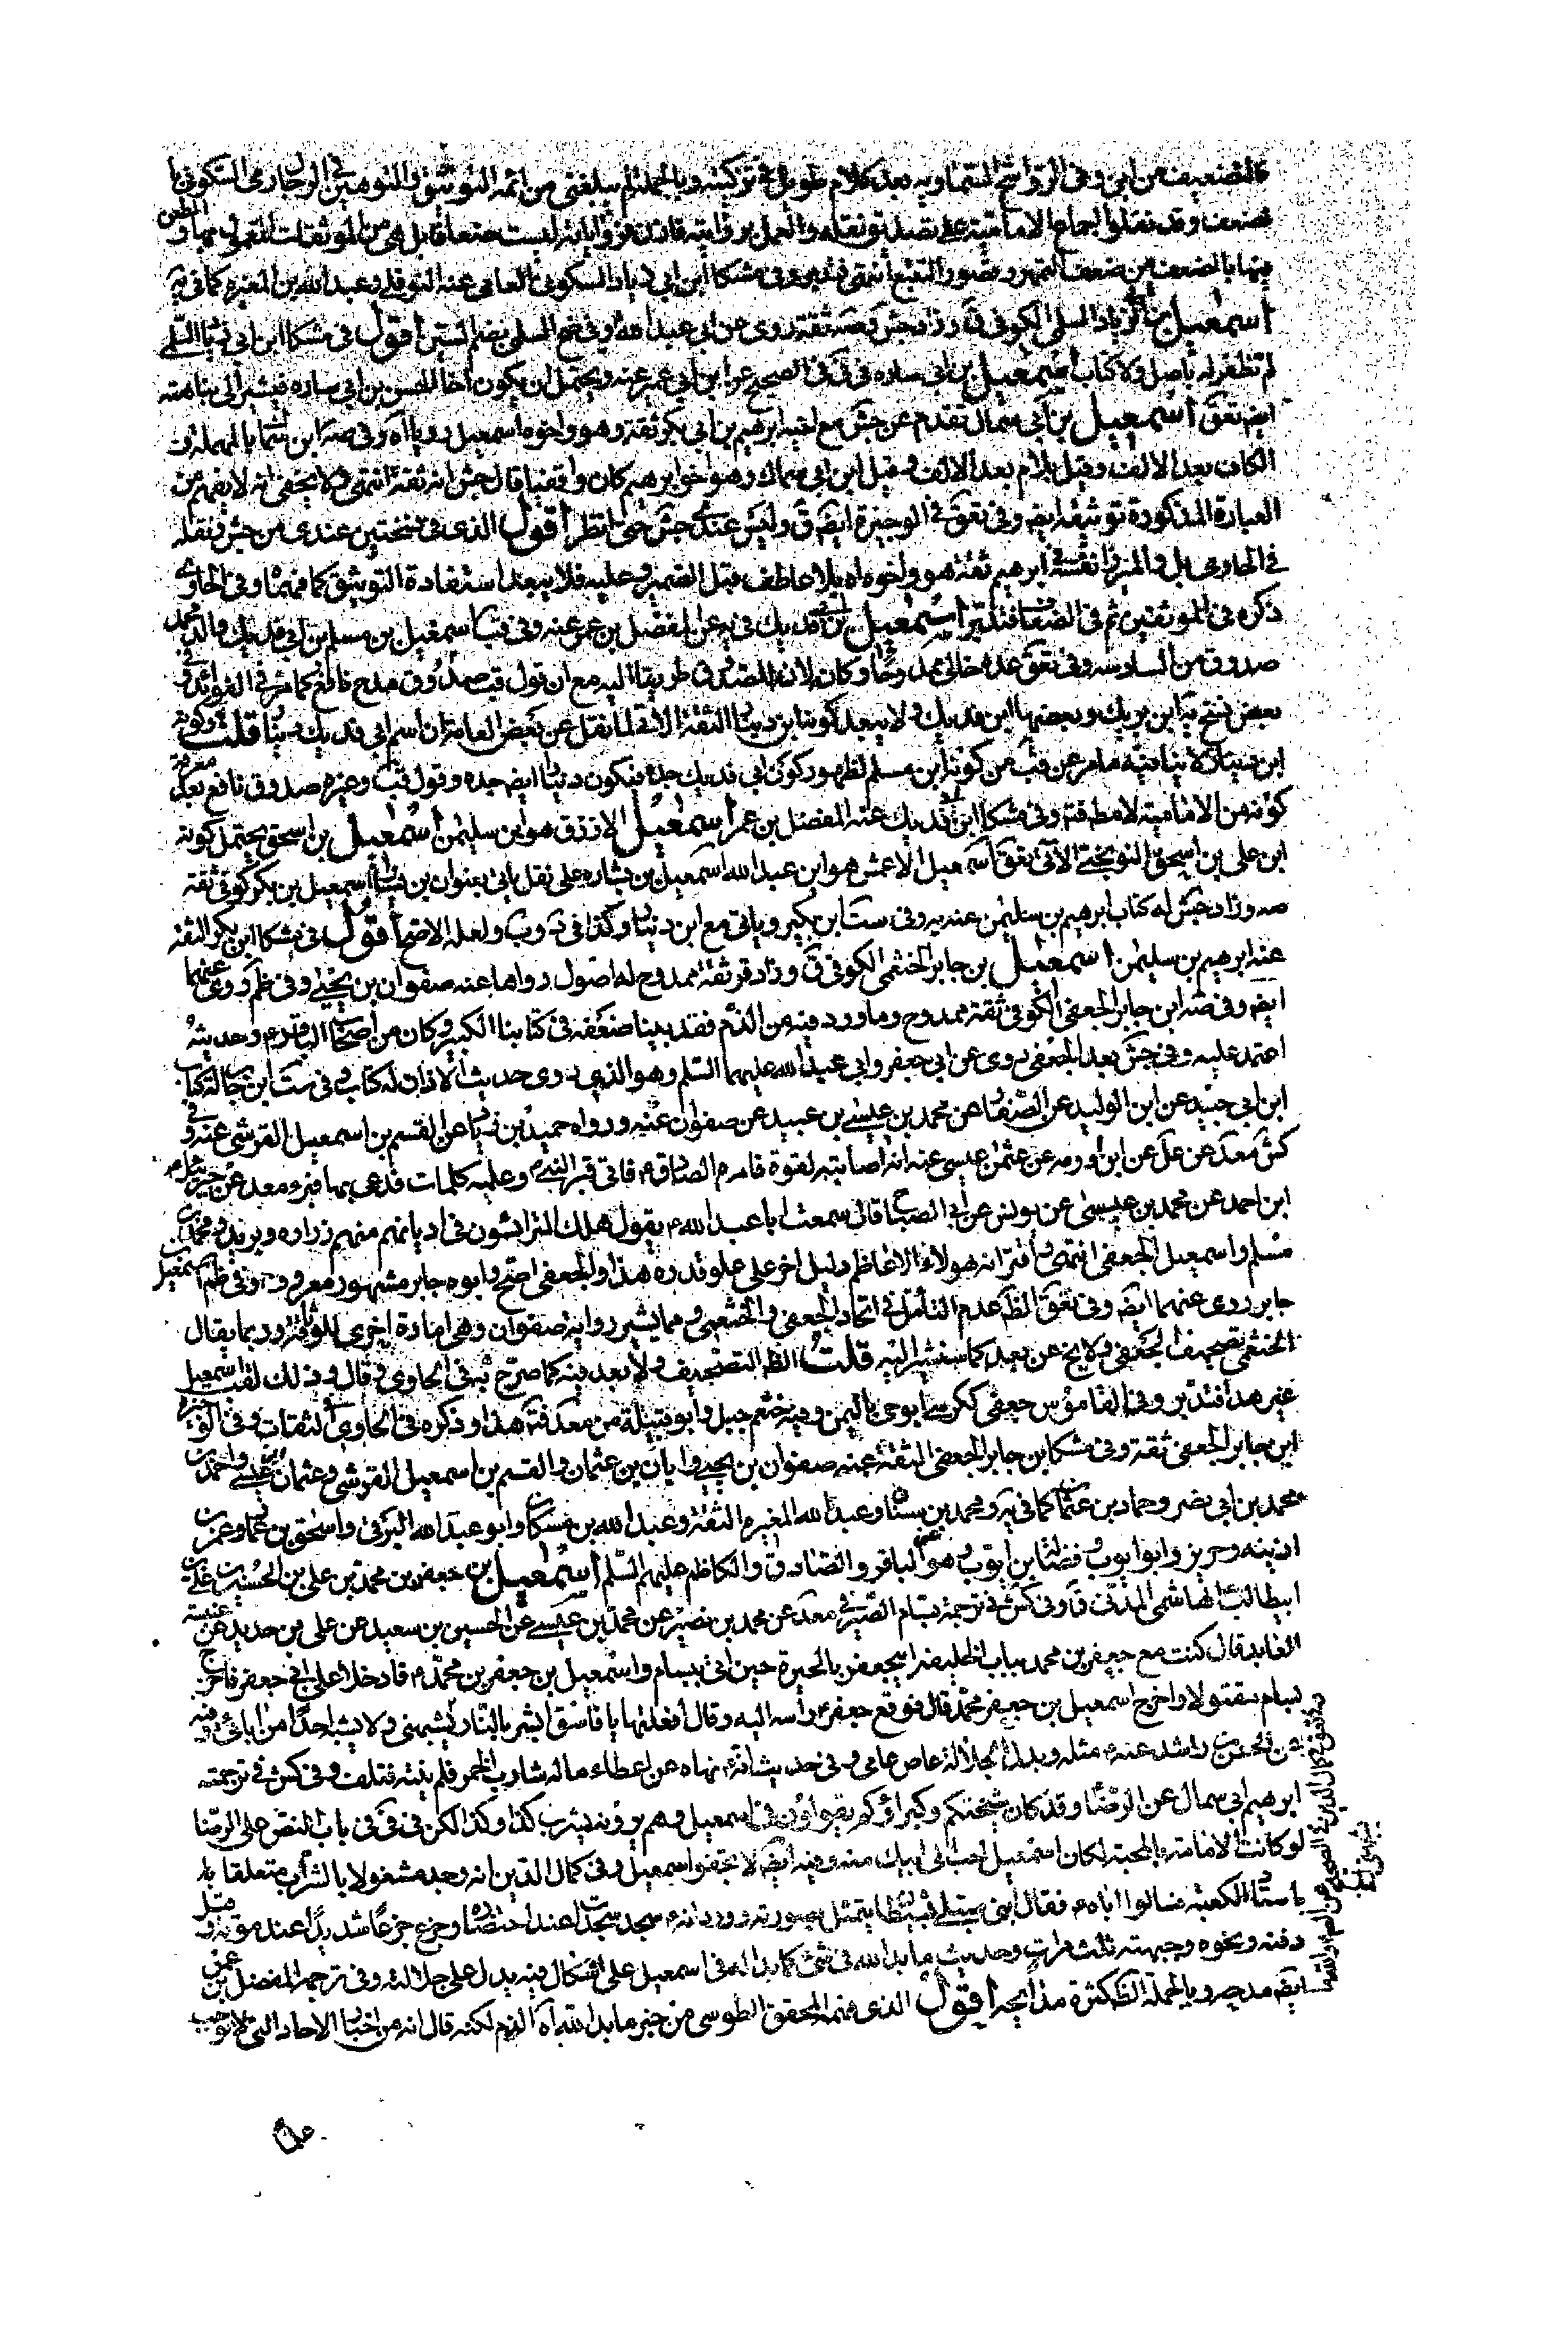 فالتضعيف من اين وفى الرواشح السماوية بعد كلام طويل فى تزكيته وبالجملة لم يبلغنى من ائمة التوثيق والتوهين فى الرجال رمى السكونى با
لضعف وقد نقلوا اجماع الامامية على تصديق نقله والعمل بروايته فاذن مروياته ليست ضعافا بل هى من الموثقات المعمول بها والطعن
فيها بالضعف من ضعف التمهر وقصور التتبع انتهى فتدبر وفى مشكا ابن ابى زياد السكونى العامى عنه النوفلى وعبد الله بن المغيرة كما فى يه
اسمعيل بن ابى زياد السلمى الكوفى ق وزاد جش بصه ثقة روى عن ابى عبد الله وفى ضح السلمى بضم السين اقول فى مشكا ابن ابى زياد السلمى
لم نظفر له باصل ولا كتاب اسمعيل بن ابى ساره فى فى فى الصحيح عن ابن ابى عمير عنه ويحتمل ان يكون اخا الحسن بن ابى ساره فيشير الى نباهته
ايضه تعق اسمعيل بن ابى سمال تقدم عن جش مع اخيه ابرهيم بن ابى بكر ثقة وهو واخوه اسمعيل رويا اه وفى صه ابن ابى سماك بالمهملة و
الكاف بعد الالف وقيل بلام بعد الالف وقيل ابن ابى سماك وهو اخو ابرهيم كان واقفيا قال جش انه ثقة انتهى ولا يخفى انه لا يفهم من
العبارة المذكورة توثيقه ايضه وفى تعق فى الوجيزة ايضه ق وليس عندى جش حتى انظر اقول الذى فى نسختين عندى من جش ونقله
فى الحاوى بل والميرزا نفسه فى ابرهيم ثقة هو واخوه اه بلا عاطف قبل الضمير وعليه فلا يبعد استفادة التوثيق كما فهمه وفى الحاوى
ذكره فى الموثقين ثم فى الضعفا فتدبر اسمعيل بن ابى فديك فى يه عن المفضل بن عمر عنه وفى قب اسمعيل بن مسلم بن ابى فديك والد محمد
صدوق من السادسة وفى تعق عده خالى ممدوحا وكان لان للصدوق طريقا اليه مع ان قول قب صدوق مدح نافع كما مر فى الفوائد وفى
بعض نسخ يه ابن بريك وبعضها ابن فديك ولا يبعد كونه ابن دينار الثقة الاتى لما نقل عن بعض العامة ان اسم ابى فديك دينار قلت وكونه
ابن دينار لا ينافيه ما مر عن قب من كونه ابن مسلم لظهور كون ابى فديك جده فيكون دينار ايضه جده وقول قب وغيره صدوق نافع بعد معرفة
كونه من الامامية لا مطلقه وفى مشكا ابن ابى فديك عنه المفضل بن عمر اسمعيل الازرق هو ابن سليمن اسمعيل بن اسحق يحتمل كونه
ابن على بن اسحق النوبختى الاتى تعق اسمعيل الاعمش هو ابن عبد الله اسمعيل بن بشاره على نقل ياتى بعنوان بن يسار اسمعيل بن بكر كوفى ثقة
صه وزاد جش له كتاب ابرهيم بن سليمن عنه به وفى ست ابن بكير وياتى مع ابن دينار وكذا فى د وب ولعله الاصح اقول فى مشكا ابن بكر الثقة
عنه ابرهيم بن سليمن اسمعيل بن جابر الخثعمى الكوفى ق وزاد قر ثقة ممدوح له اصول رواها عنه صفوان بن يحيى وفى ظم روى عنهما
ايضه وفى صه ابن جابر الجعفى الكوفى ثقة ممدوح وما ورد فيه من الذم فقد بينا ضعفه فى كتابنا الكبير وكان من اصحاب الباقر ع وحديثه
اعتمد عليه وفى جش بعد الجعفى روى عن ابى جعفر وابى عبد الله عليهما السلم وهو الذى روى حديث الاذان له كتاب وفى ست ابن جابر له كتاب
ابن ابى جيد عن ابن الوليد عن الصفار عن محمد بن عيسى بن عبيد عن صفوان عنه ورواه حميد بن زياد عن القسم بن اسمعيل القرشى عنه وفى
كش معد عن عل عن ابن اورمه عن عثمن عيسى عنه انه اصابته لقوة فامره الصادق ع فاتى قبر النبى ص وعليه كلمات فدعى بها فبرء معد عن جبرئيل
ابن احمد عن محمد بن عيسى عن يونس عن ابى الصباح قال سمعت ابا عبد الله ع يقول هلك المترائسون فى اديانهم منهم زراره وبريد ومحمد بن
مسلم واسمعيل الجعفى انتهى واقترانه هولاء الاعاظم دليل اخر على علو قدره هذا والجعفى اصح وابوه جابر مشهور معروف وفى ظم اسمعيل بن
جابر روى عنهما ايضه وفى تعق الظ عدم التامل فى اتحاد الجعفى والخثعمى ومما يشير رواية صفوان وهى امارة اخرى للوثاقة وربما يقال
الخثعمى تصحيف الجعفى ولا يخ عن بعد كما سنشير اليه قلت الظ التصحيف ولا بعد فيه كما صرح به فى الحاوى وقال وذلك لقب اسمعيل
غير هذا فتدبر وفى القاموس جعفى ككرسى ابو حى باليمن وفيه خثعم جبل وابو قبيلة من معد فته هذا وذكره فى الحاوى فى الثقات وفى الوجيزة
ابن جابر الجعفى ثقة وفى مشكا ابن جابر الجعفى الثقة عنه صفوان بن يحيى وابان بن عثمان والقسم بن اسمعيل القرشى وعثمان بن عيسى واحمد بن
محمد بن ابى نصر وحماد بن عثمان كما فى يه ومحمد بن سنان وعبد الله المغيرة الثقة وعبد الله بن مسكان وابو عبد الله البرقى واسحق بن عمار وعمر بن
اذينه وحريز وابو ايوب وفضالة بن ايوب وهو عن الباقر والصادق والكاظم عليهم السلم اسمعيل بن جعفر بن محمد بن على بن الحسين بن على بن
ابيطالب ع الهاشمى المدنى ق وفى كش فى ترجمة بسام الصيرفى معد عن محمد بن نصير عن محمد بن عيسى عن الحسين بن سعيد عن على بن حديد عن عنبسة
العابد قال كنت مع جعفر بن محمد بباب الخليفة ابيجعفر بالحيرة حين اتى ببسام واسمعيل بن جعفر بن محمد ع فادخلا على ابى جعفر فاخرج
بسام مقتولا واخرج اسمعيل بن جعفر محمد قال فرفع جعفر ع راسه اليه وقال افعلتها يا فاسق ابشر بالنار لا يشبهنى ولا يشبه احدا من ابائى وفيه
عن الحسن بن راشد عنه ع مثله وبدل الجلالة عاص عاص وفى حديث انه ع نهاه عن اعطاء ماله شارب الخمر فلم ينته فتلف وفى كش فى ترجمة
ابرهيم ابى سمال عن الرضا وقد كان شيختكم وكبراؤكم يقولون فى اسمعيل وهم يرونه يشرب كذا وكذا لكن فى فى فى باب النص على الرضا
لو كانت الامامة بالمحبة لكان اسمعيل احب الى ابيك منه وفيه ايضه لا تجفوا اسمعيل وفى كمال الدين انه وجد مشغولا بالشراب متعلقا بله
باستار الكعبة فسالوا اباه ع فقال ابنى مبتلى بشيطان يتمثل بصورته وورد انه ع سجد سجدات عند احتضاره وجزع جزعا شديدا عند موته وقبل
دفنه ونحوه وجبهته ثلث مرات وحديث ما بدا لله فى شئ كما بدا له فى اسمعيل على اشكال فيه يدل على جلالته وفى ترجمة المفضل بن عمر
ايضه مدحه وبالجملة الظ كثرة مدايحه اقول الذى فهمه المحقق الطوسى من خبر ما بدا لله اه الذم لكنه قال انه من اخبار الاحاد التى لا توجب